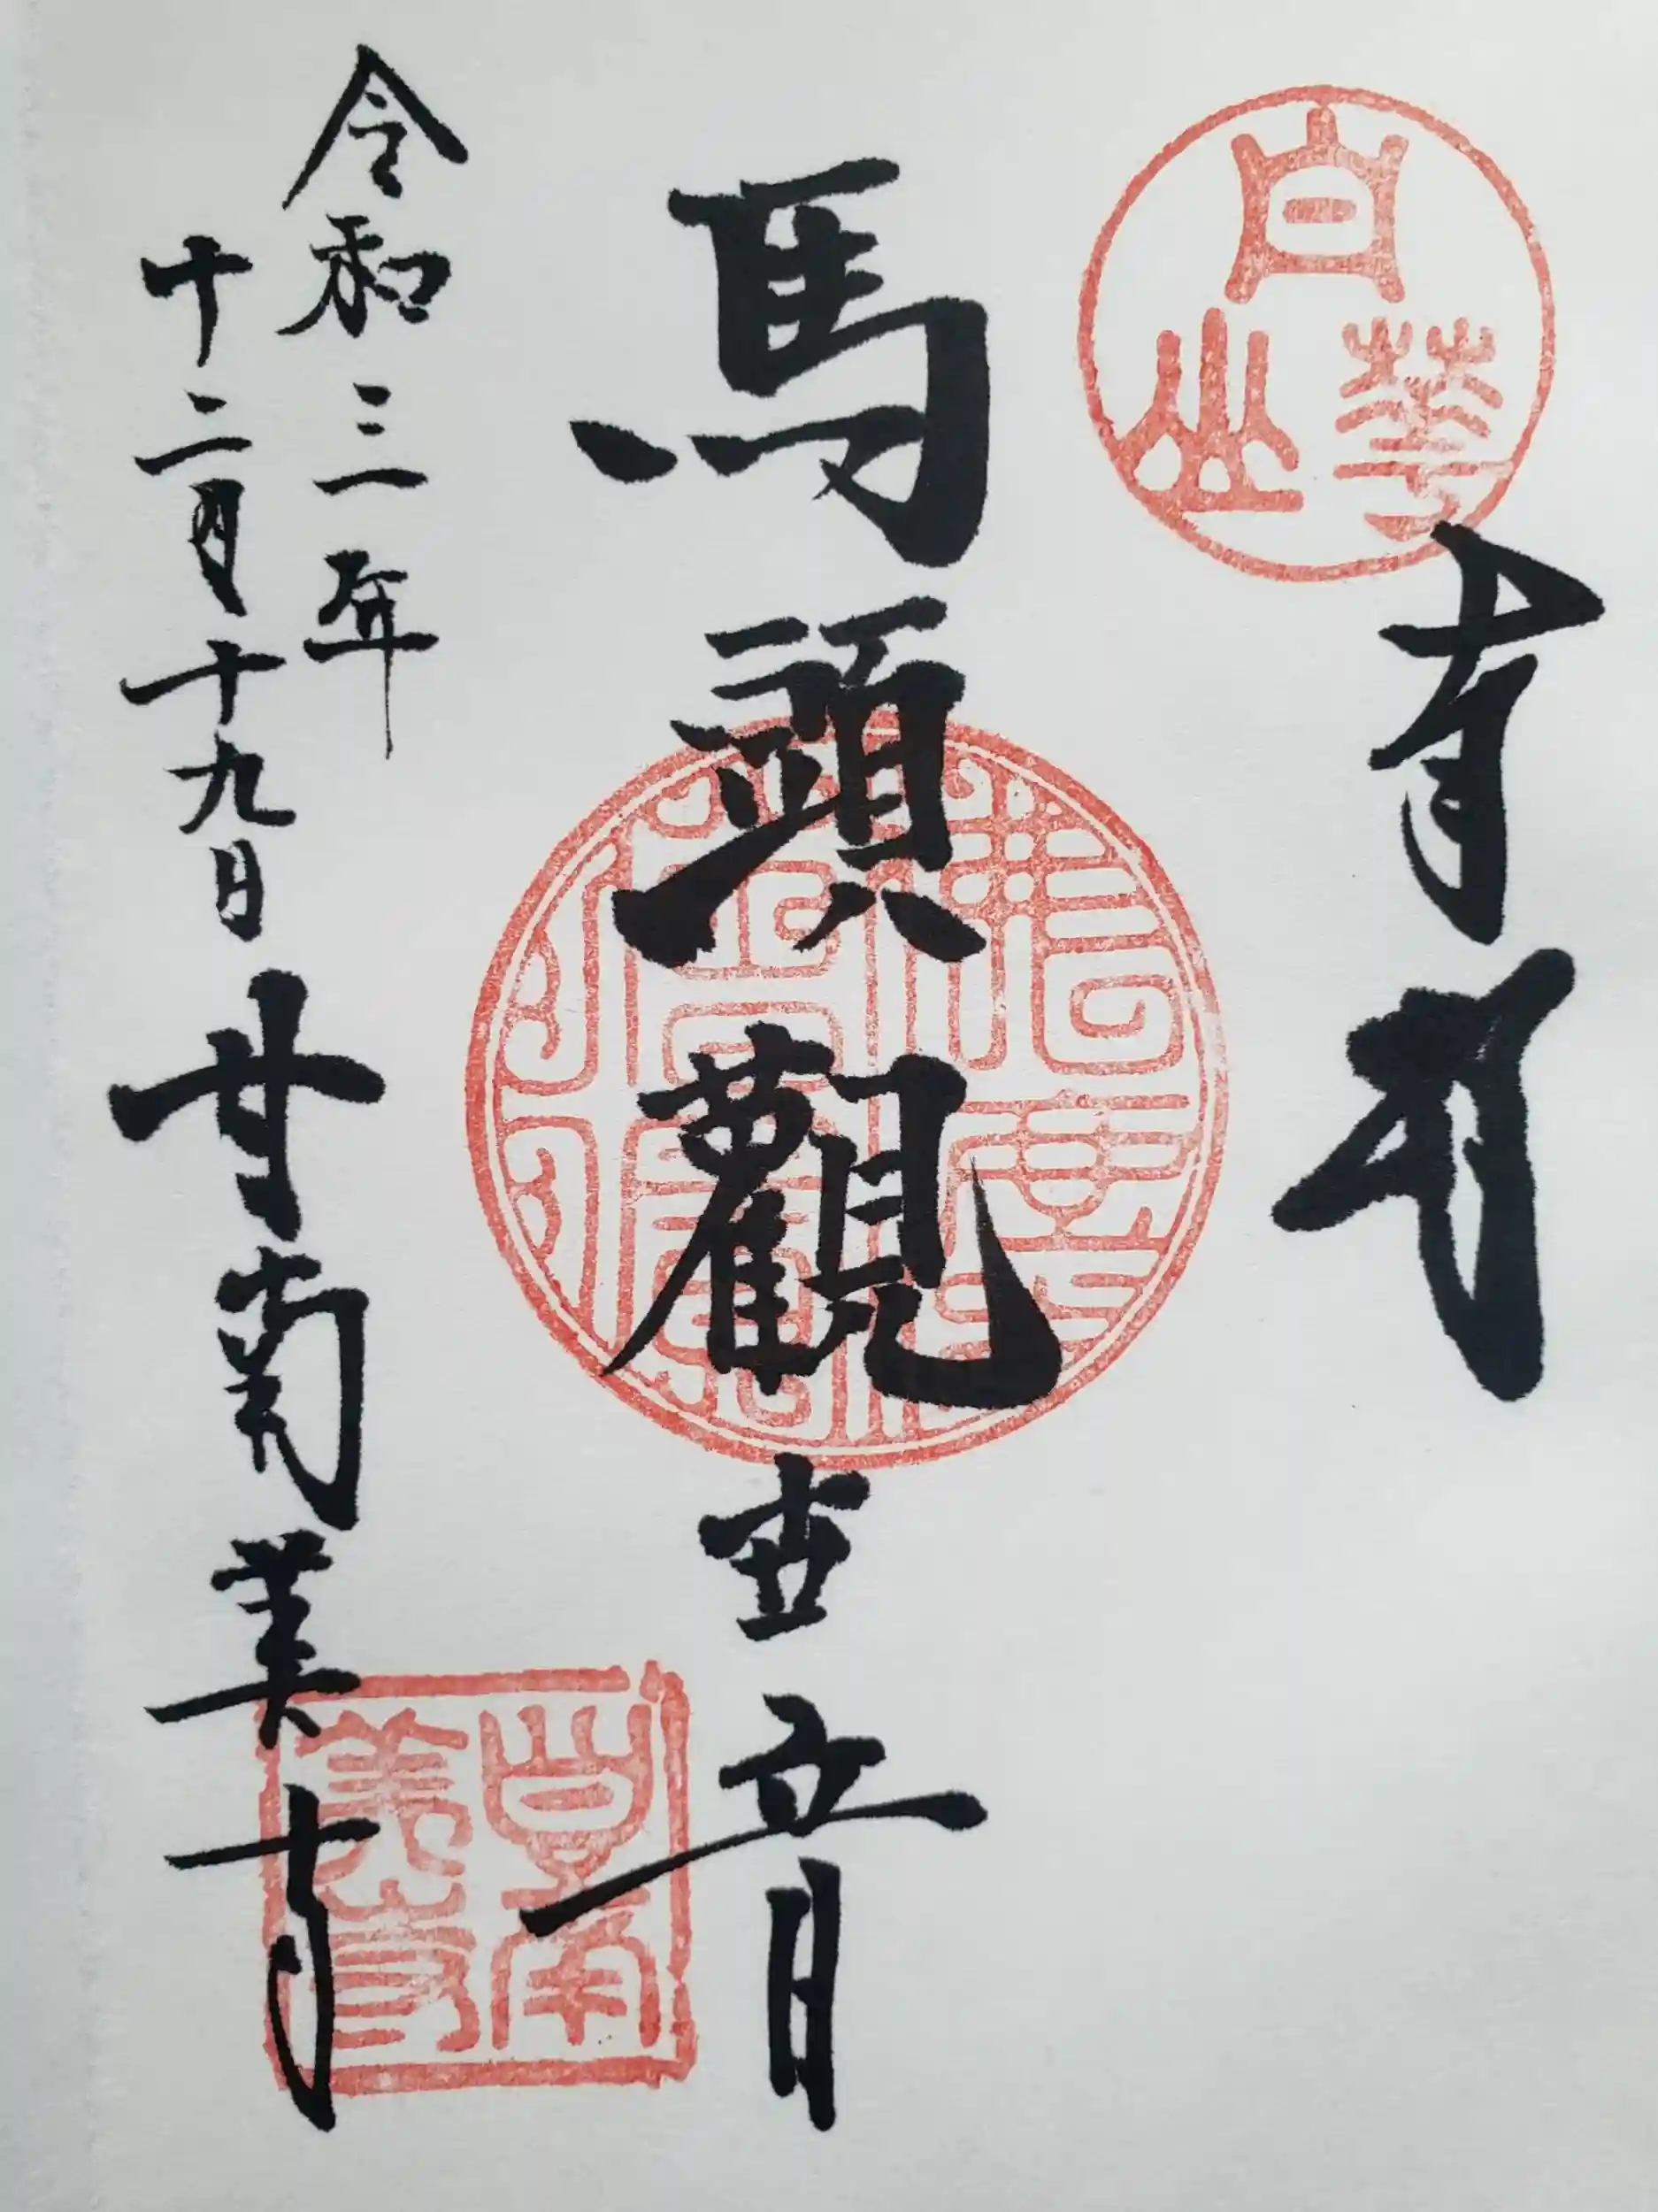 白華山
奉拝
馬頭觀世音
令和三年
十二月十九日
甘南美寺
甘南美寺